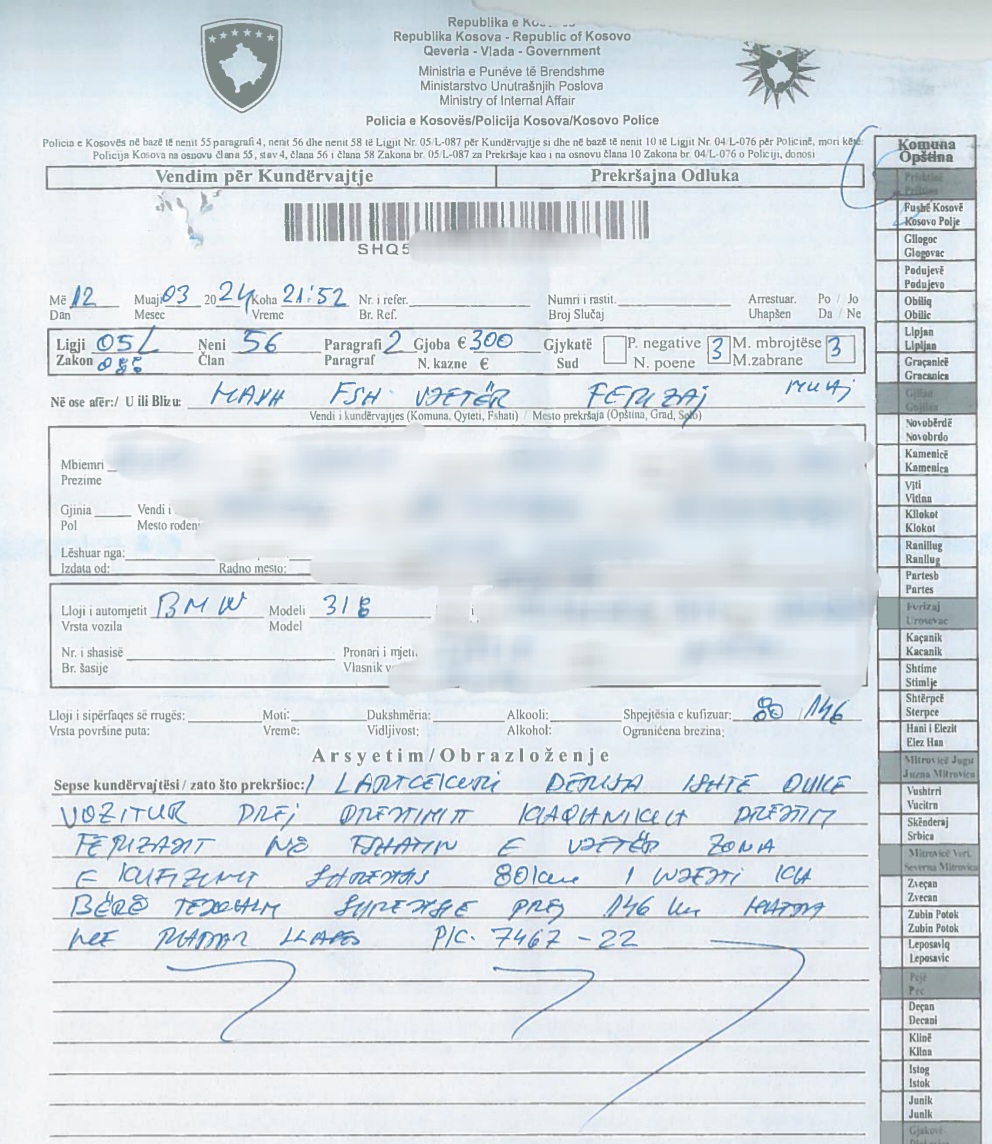 Republika e
Republika Kosova - Republic of Kosovo
Qeveria - Vlada - Government
Ministria e Punëve të Brendshme
Ministarstvo Unutrašnjih Poslova
Ministry of Internal Affair
Policia e Kosovës/Policija Kosova/Kosovo Police
Policia e Kosovës në bazë të nenit 55 paragrafi 4, nenit 56 dhe nenit 58 të Ligjit Nr. 05/L-087 për Kundërvajtje si dhe në bazë të nenit 10 të Ligjit Nr. 04/L-076 për Policinë, mori këtë:
Policija Kosova na osnovu člana 55, stav 4, člana 56 i člana 58 Zakona br. 05/L-087 za Prekršaje kao i na osnovu člana 10 Zakona br. 04/L-076 o Policiji, donosi
Vendim për Kundërvajtje Prekršajna Odluka
SHQ5
Më 12 Muaj 03 2024 Koha 21:52 Nr. i refer. Numri i rastit. Arrestuar. Po / Jo
Dan Mesec Vreme Br. Ref. Broj Slučaj Uhapšen Da / Ne
Ligji 05L Neni 56 Paragrafi 2 Gjoba € 300 Gjykatë P. negative 3 M. mbrojtëse 3
Zakon 088 Član Paragraf N. kazne € Sud N. poene M.zabrane
Në ose afër:/ U ili Blizu: FSH. VJETËR FERIZAJ MUAJ
Vendi i kundërvajtjes (Komuna, Qyteti, Fshati) / Mesto prekršaja (Opština, Grad, Selo)
Mbiemri
Prezime
Gjinia Vendi i
Pol Mesto rođen
Lëshuar nga:
Izdata od: Radno mesto:
Lloji i automjetit BMW Modeli 318
Vrsta vozila Model
Nr. i shasisë Pronari i mjeti
Br. šasije Vlasnik v
Lloji i sipërfaqes së rrugës: Moti: Dukshmëria: Alkooli: Shpejtësia e kufizuar: 80 /146
Vrsta površine puta: Vreme: Vidljivost: Alkohol: Ograničena brezina:
Arsyetim/Obrazloženje
Sepse kundërvajtësi / zato što prekršioc: I LARTCEKURI DERISA ISHTE DUKE
VOZITUR PREJ DREJTIMIT KAQANIKUT DREJTIM
FERIZAJIT NË FSHATIN E VJETËR ZONA
E KUFIZIMIT 80km I NJEJTI KA
BËRË PREJ 146 km
ME LLAPES P/C. 7467-22
Komuna
Opština
Prishtinë
Pristina
Fushë Kosovë
Kosovo Polje
Gllogoc
Glogovac
Podujevë
Podujevo
Obiliq
Obilic
Lipjan
Lipljan
Graçanicë
Gracanica
Gjilan
Gnjilane
Novobërdë
Novobrdo
Kamenicë
Kamenica
Viti
Vitina
Kllokot
Klokot
Ranillug
Ranilug
Partesh
Partes
Ferizaj
Urosevac
Kaçanik
Kacanik
Shtime
Stimlje
Shtërpcë
Sterpce
Hani i Elezit
Elez Han
Mitrovicë Jugu
Juzna Mitrovica
Vushtrri
Vucitrn
Skënderaj
Srbica
Mitrovicë Veri
Severna Mitrovica
Zveçan
Zvecan
Zubin Potok
Zubin Potok
Leposaviq
Leposavic
Pejë
Pec
Deçan
Decani
Klinë
Klina
Istog
Istok
Junik
Junik
Gjakovë